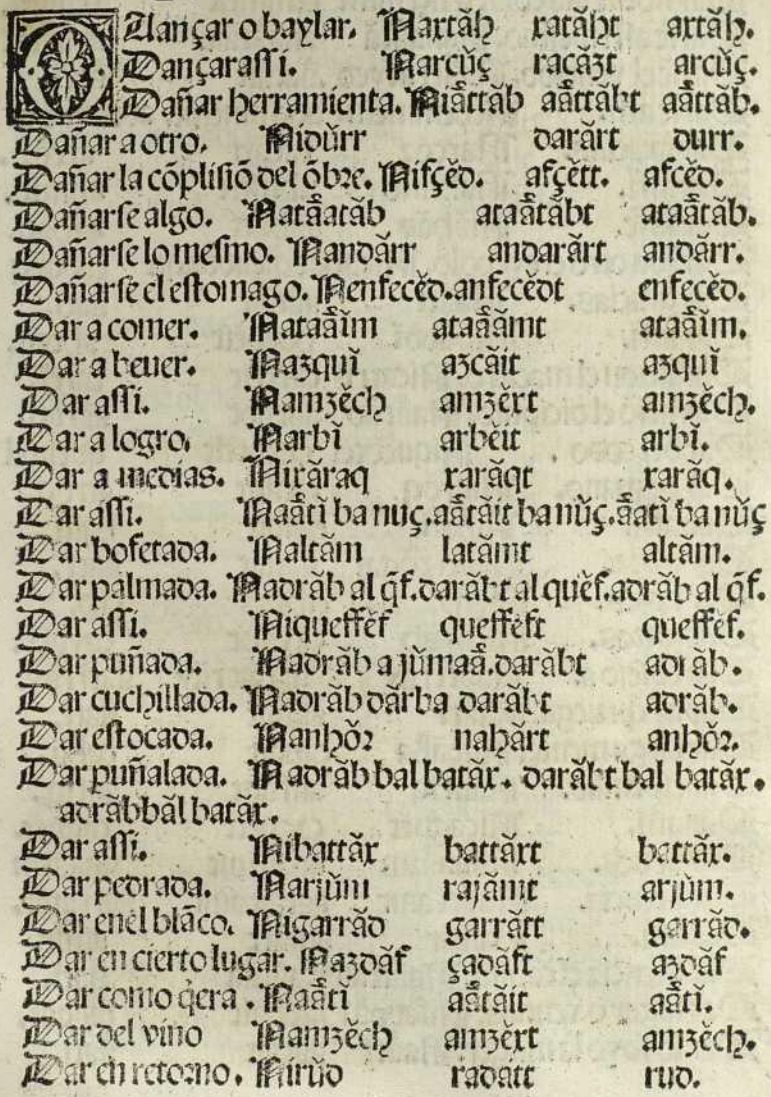 DAnçar o baylar. Naxtăh xatăht axtăh.
Dançar assi. Narcŭç racăzt arcŭç.
Dañar herramienta. Niããttăb aãttăbt aãttăb.
Dañar a otro. Nidŭrr darărt durr.
Dañar la cõplisiõ del õbre. Nifçĕd. afçĕtt. afcĕd.
Dañarse algo. Nataãatăb ataãtăbt ataãtăb.
Dañarse lo mesmo. Nandărr andarărt andărr.
Dañarse el estomago. Nenfecĕd. anfecĕdt enfecĕd.
Dar a comer. Nataãĭm ataããmt ataãĭm.
Dar a bever. Nazquĭ azcăit azquĭ
Dar assi. Namzĕch amzĕxt amzĕch.
Dar a logro. Narbĭ arbĕit arbĭ.
Dar a medias. Nixăraq xarăqt xarăq.
Dar assi. Naãtĭ ba nuç. aãtăit ba nŭç. ãatĭ ba nŭç
Dar bofetada. Naltăm latămt altăm.
Dar palmada. Nadrăb al q̃f. darăbt al quĕf. adrăb al q̃f.
Dar assi. Niqueffĕf queffĕft queffĕf.
Dar puñada. Nadrăb a jŭmaã. darăbt adrăb.
Dar cuchillada. Nadrăb dărba darăbt adrăb.
Dar estocada. Nanhŏr nahărt anhŏr.
Dar puñalada. Nadrăb bal batăx. darăbt bal batăx.
adrăb băl batăx.
Dar assi. Nibattăx battăxt battăx.
Dar pedrada. Narjŭm rajămt arjŭm.
Dar enel blãco. Nigarrăd garrătt garrăd.
Dar en cierto lugar. Nazdăf çadăft azdăf
Dar como q̃era. Naãtĭ aãtăit aãtĭ.
Dar del vino Namzĕch amzĕxt amzĕch.
Dar en retorno. Nirŭd radătt rud.